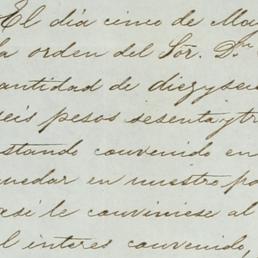 El dia cinco de Ma
la orden del Sor. Dn
antidad de diezysei
seis pesos sesentaytr
stando convenido en
uedar en nuestro po
asi le conviniese al
l interes convenido,